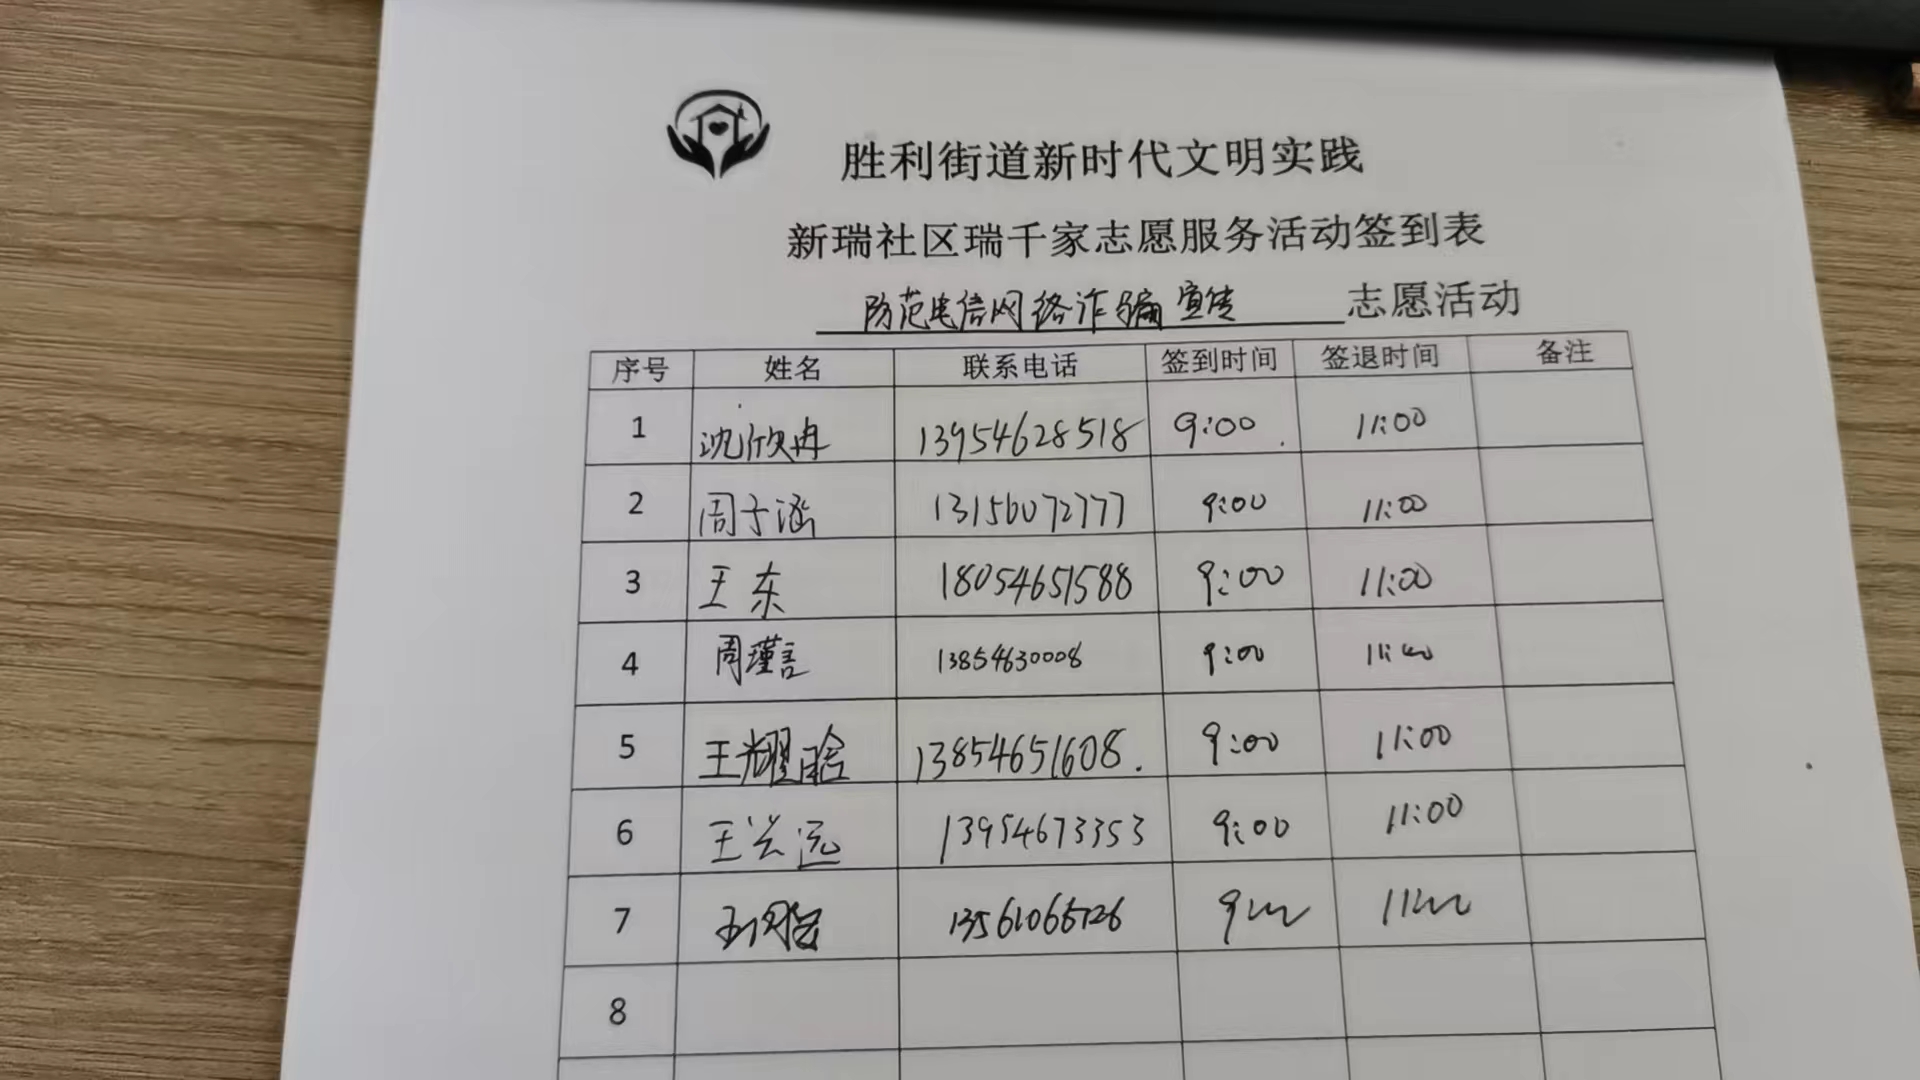 胜利街道新时代文明实践
新瑞社区瑞千家志愿服务活动签到表
防范电信网络诈骗宣传 志愿活动
序号 姓名 联系电话 签到时间 签退时间 备注
1 沈欣冉 13954628518 9:00 11:00
2 周子涵 13156072777 9:00 11:00
3 王东 18054651588 9:00 11:00
4 周瑾言 13854630008 9:00 11:00
5 王耀晗 13854651608. 9:00 11:00
6 王兴远 13954673353 9:00 11:00
7 13561066126 9:00 11:00
8